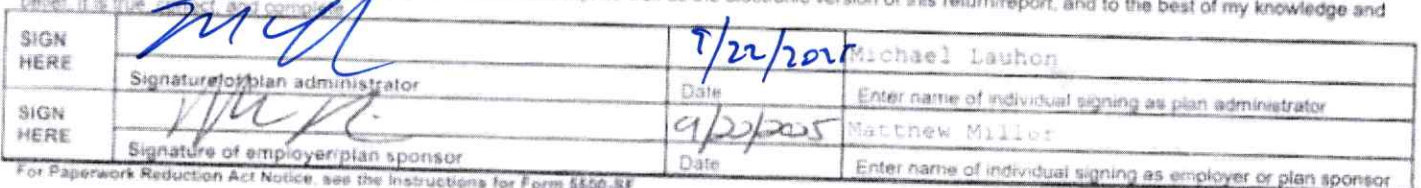 belief, it is true, correct, and complete.
version of this return/report, and to the best of my knowledge and
SIGN HERE
9/22/2025 Michael Lauhon
Signature of plan administrator Date Enter name of individual signing as plan administrator
SIGN HERE
9/22/2025 Matthew Miller
Signature of employer/plan sponsor Date Enter name of individual signing as employer or plan sponsor
For Paperwork Reduction Act Notice, see the Instructions for Form 5500-SF